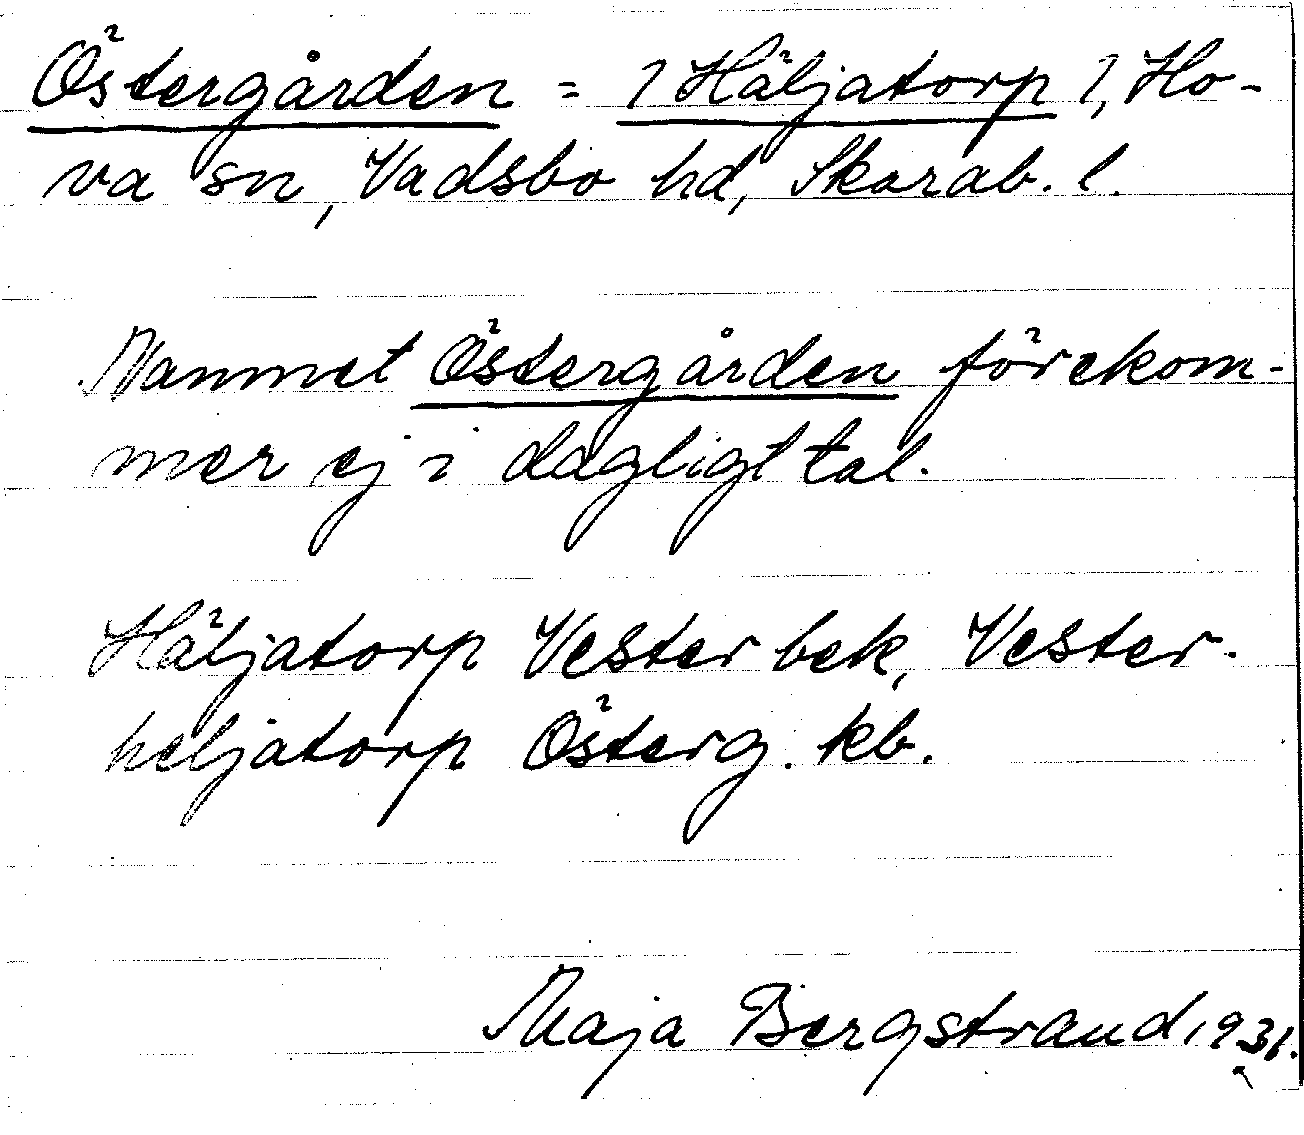 Östergården = 1 Häljatorp 1, Ho-
va sn, Vadsbo hd, Skarab. l.
Namnet Östergården förekom-
mer ej i dagligt tal.
Häljatorp Vester bek, Vester-
heljatorp Österg. kb.
Maja Bergstrand 1931.